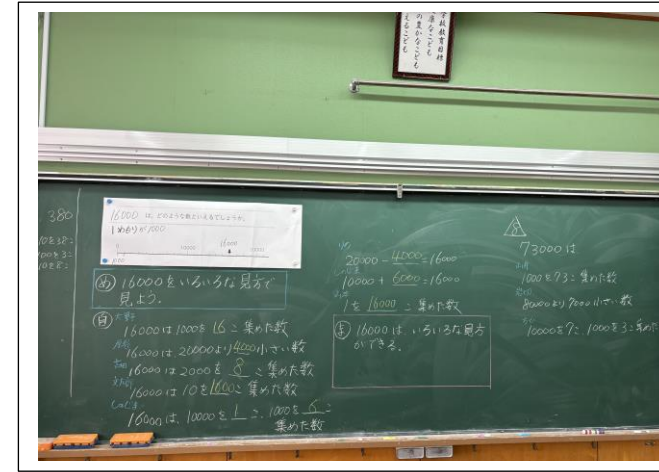 学校教育目標
康なこども
の豊かなこども
えるこども
380
10を38こ
100を3こ
10を8こ
16000 は、どのような数といえるでしょうか。
1めもりが1000
0
10000
16000
20000
1000
め 16000をいろいろな見方で
見よう。
自
16000は1000を16こ集めた数
16000は20000より4000小さい数
16000は2000を8こ集めた数
16000は10を1600こ集めた数
16000は、10000を1こ、1000を6こ
集めた数
20000-4000=16000
10000+6000=16000
1を16000こ集めた数
ま 16000は、いろいろな見方
ができる。
8
73000は
1000を73こ集めた数
80000より7000小さい数
10000を7こ1000を3こ集めた